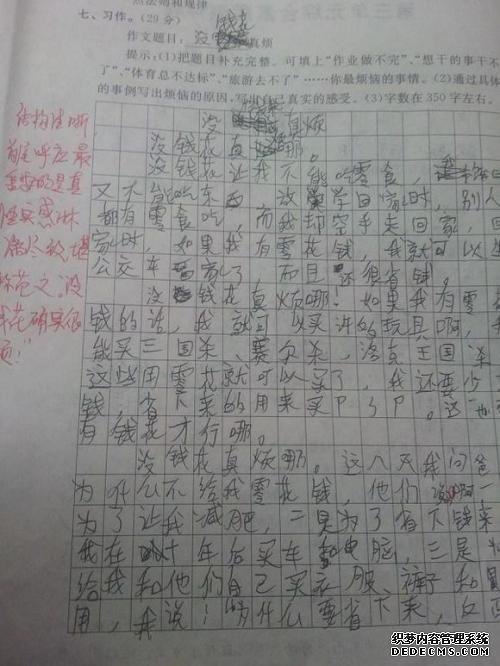 点法则和规律
七、习作。(29分)
作文题目：没钱花真烦
提示：(1)把题目补充完整。可填上“作业做不完”、“想干的事干不
了”、“体育总不达标”、“旅游去不了”……你最烦恼的事情。(2)通过具体
的事例写出烦恼的原因，写出自己真实的感受。(3)字数在350字左右。
没钱花真烦
没钱花真烦哪。
没钱花让我不能吃零食，
又不能吃东西，放学回家时，别人
都有零食吃，而我却空手走回家，回
家时，如果我有零花钱，我就可以坐
公交车回家了，而且还很省钱。
没钱花真烦哪！如果我有零
钱的话，我就可以买许的玩具啊，
能买三国杀、赛尔杀，洛克王国杀
这些用零花就可以买了，我还要少
钱，省下来的用来买PSP。这也
有钱花才行哪。
没钱花真烦哪。这几天我问爸
为什么不给我零花钱，他们说啊一
为了让我减肥，二是为了省下钱来
我在十年后买车和电脑，三是
给我和他们自己买衣服裤子和
用，我说！为什么要省下来，反
结构清晰
首尾呼应最
重要的是真
情实感淋
漓尽致，堪
称范文。没
钱花确实很
烦！”